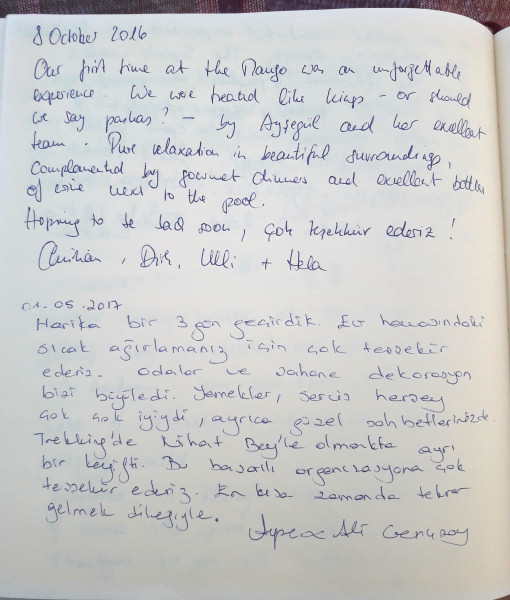 8 October 2016
Our first time at the Mango was an unforgettable
experience. We were treated like kings - or should
we say pashas? - by Ayşegül and her excellent
team. Pure relaxation in beautiful surroundings,
complemented by gourmet dinners and excellent bottles
of wine next to the pool.
Hoping to be back soon, çok teşekkür ederiz!
Dirk, Ulli + Hela
01.05.2017
Harika bir 3 gün geçirdik. Ev havasındaki
sıcak ağırlamanız için çok teşsekür
ederiz. Odalar ve şahane dekorasyon
bizi büyüledi. Yemekler, servis herşey
çok çok iyiydi, ayrıca güzel sohbetlerinizde.
Trekking'de Nihat Bey'le olmakta ayrı
bir keyifti. Bu başarılı organizasyona çok
teşsekür ederiz. En kısa zamanda tekrar
gelmek dileğiyle.
Ali